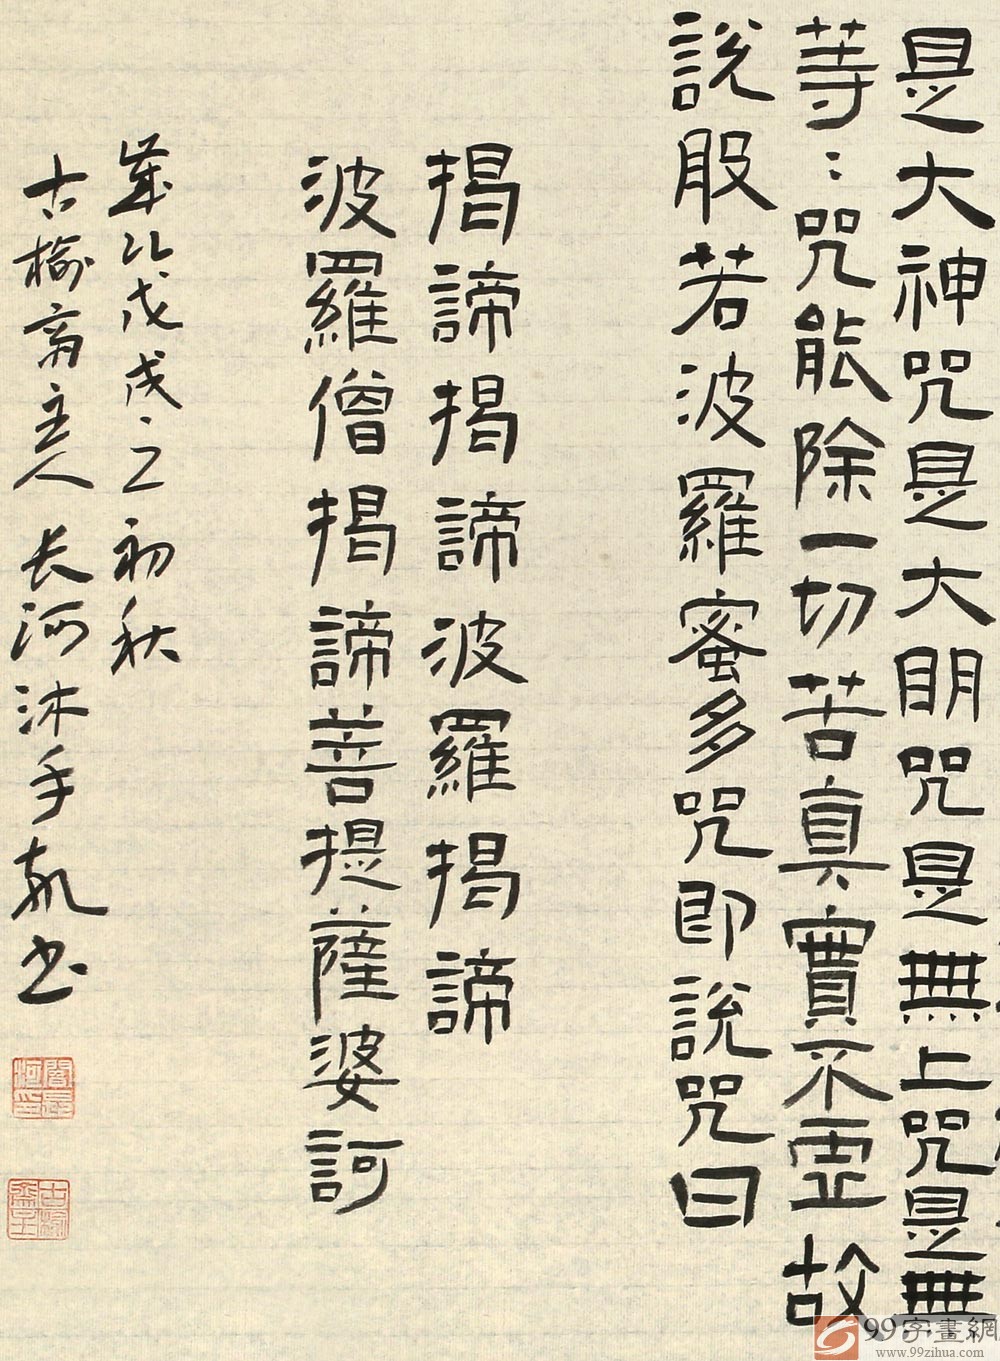 是大神咒是大明咒是無上咒是無
等：咒能除一切苦真實不虛故
說般若波羅蜜多咒即說咒曰
揭諦揭諦波羅揭諦
波羅僧揭諦菩提薩婆訶
歲次戊戌之初秋
古榆斎主人長河沐手敬书
閻長河印
古榆斎主
99字畫網
www.99zihua.com